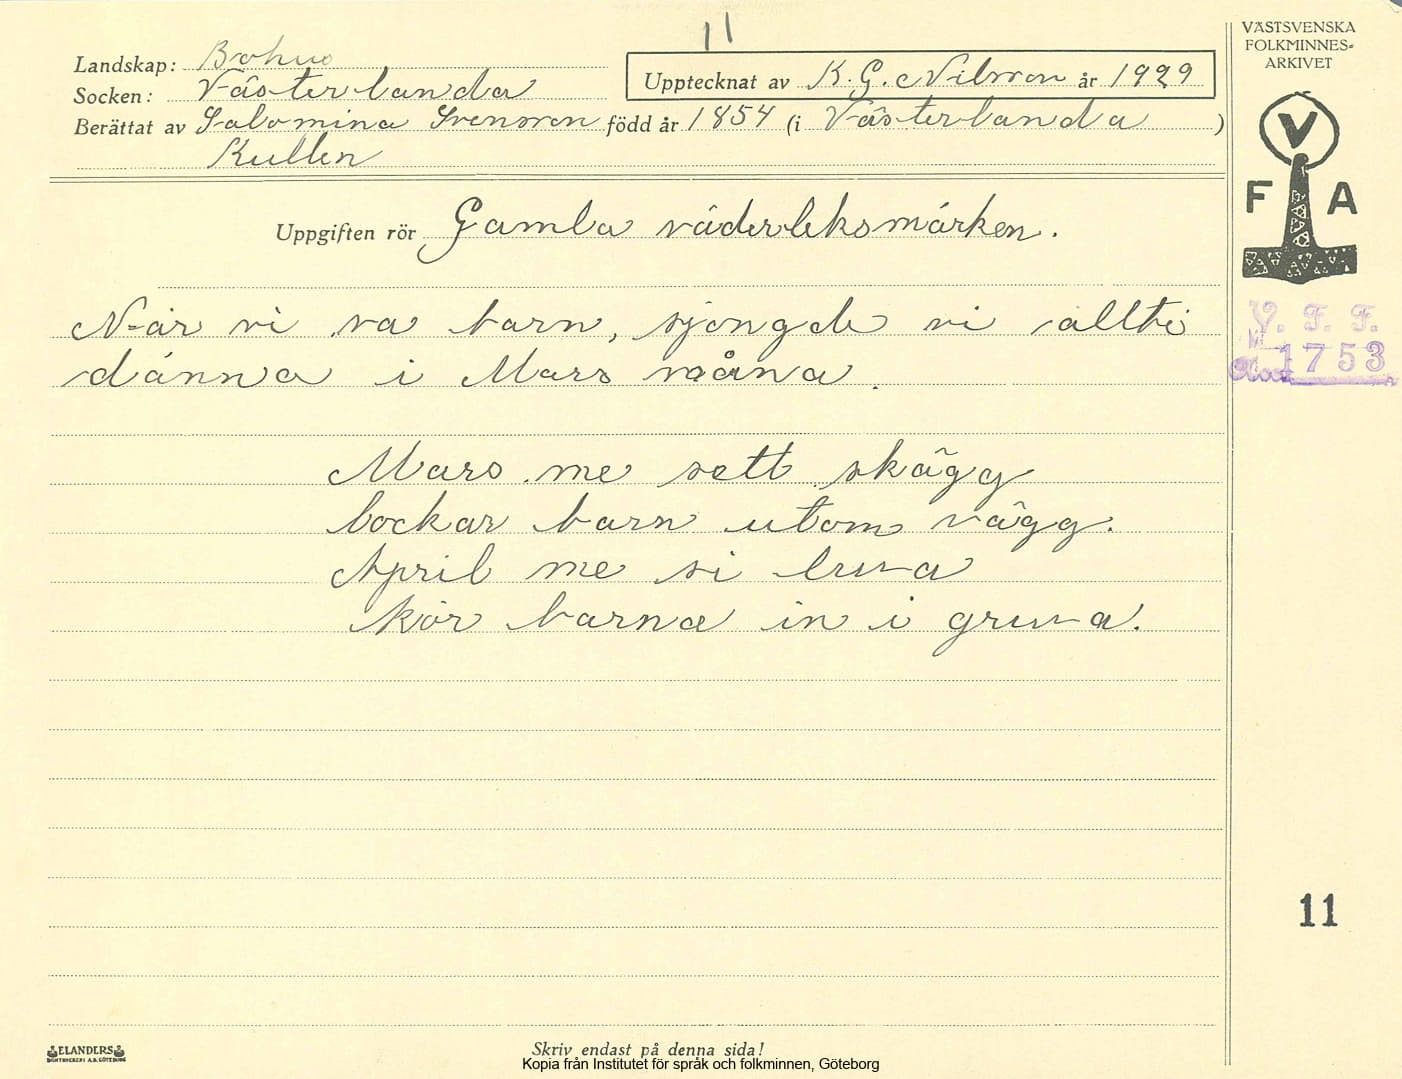 11
VÄSTSVENSKA
FOLKMINNES=
ARKIVET
Landskap: Bohus
Socken: Västerlanda
Upptecknat av K. G. Nilsson år 1929
Berättat av Salomina Svensson född år 1854 (i Västerlanda )
Kullen
V
F A
Uppgiften rör Gamla väderleksmärken.
V. F. F.
1753
När vi va barn, sjöngde vi allti
dänna i Mars måna.
Mars me sett skägg
lockar barn utom vägg.
April me si luva
kör barna in i gruva.
11
ELANDERS
Skriv endast på denna sida!
Kopia från Institutet för språk och folkminnen, Göteborg